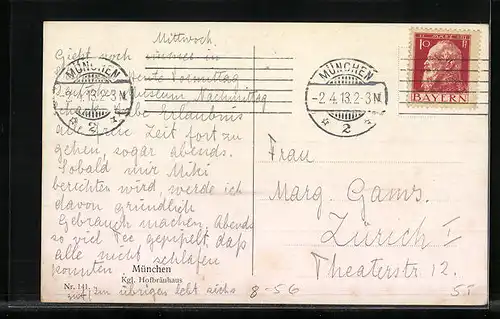 Mittwoch.
Geht noch immer in
heute Vormittag
Museum Nachmittag
habe Erlaubnis
alle freie Zeit fort zu
gehen, sogar abends.
Sobald mir Miki
berichten wird, werde ich
davon gründlich
Gebrauch machen. Abends
so viel Tee gepipelt, daß
alle nicht schlafen
konnten.
München
Kgl. Hofbräuhaus
Nr. 141
im übrigen lebt auch
8-56
MÜNCHEN
4.13.2-3N.
2
MÜNCHEN
-2.4.13.2-3N.
2
10 Pf
BAYERN
Frau
Marg. Gams.
Zürich I
Theaterstr. 12.
ST